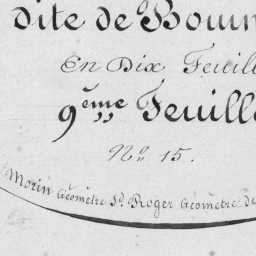 dite de Bouin
En Dix Feuill
9ème Feuille
No 15.
Morin Géomètre St. Roger Géomètre de